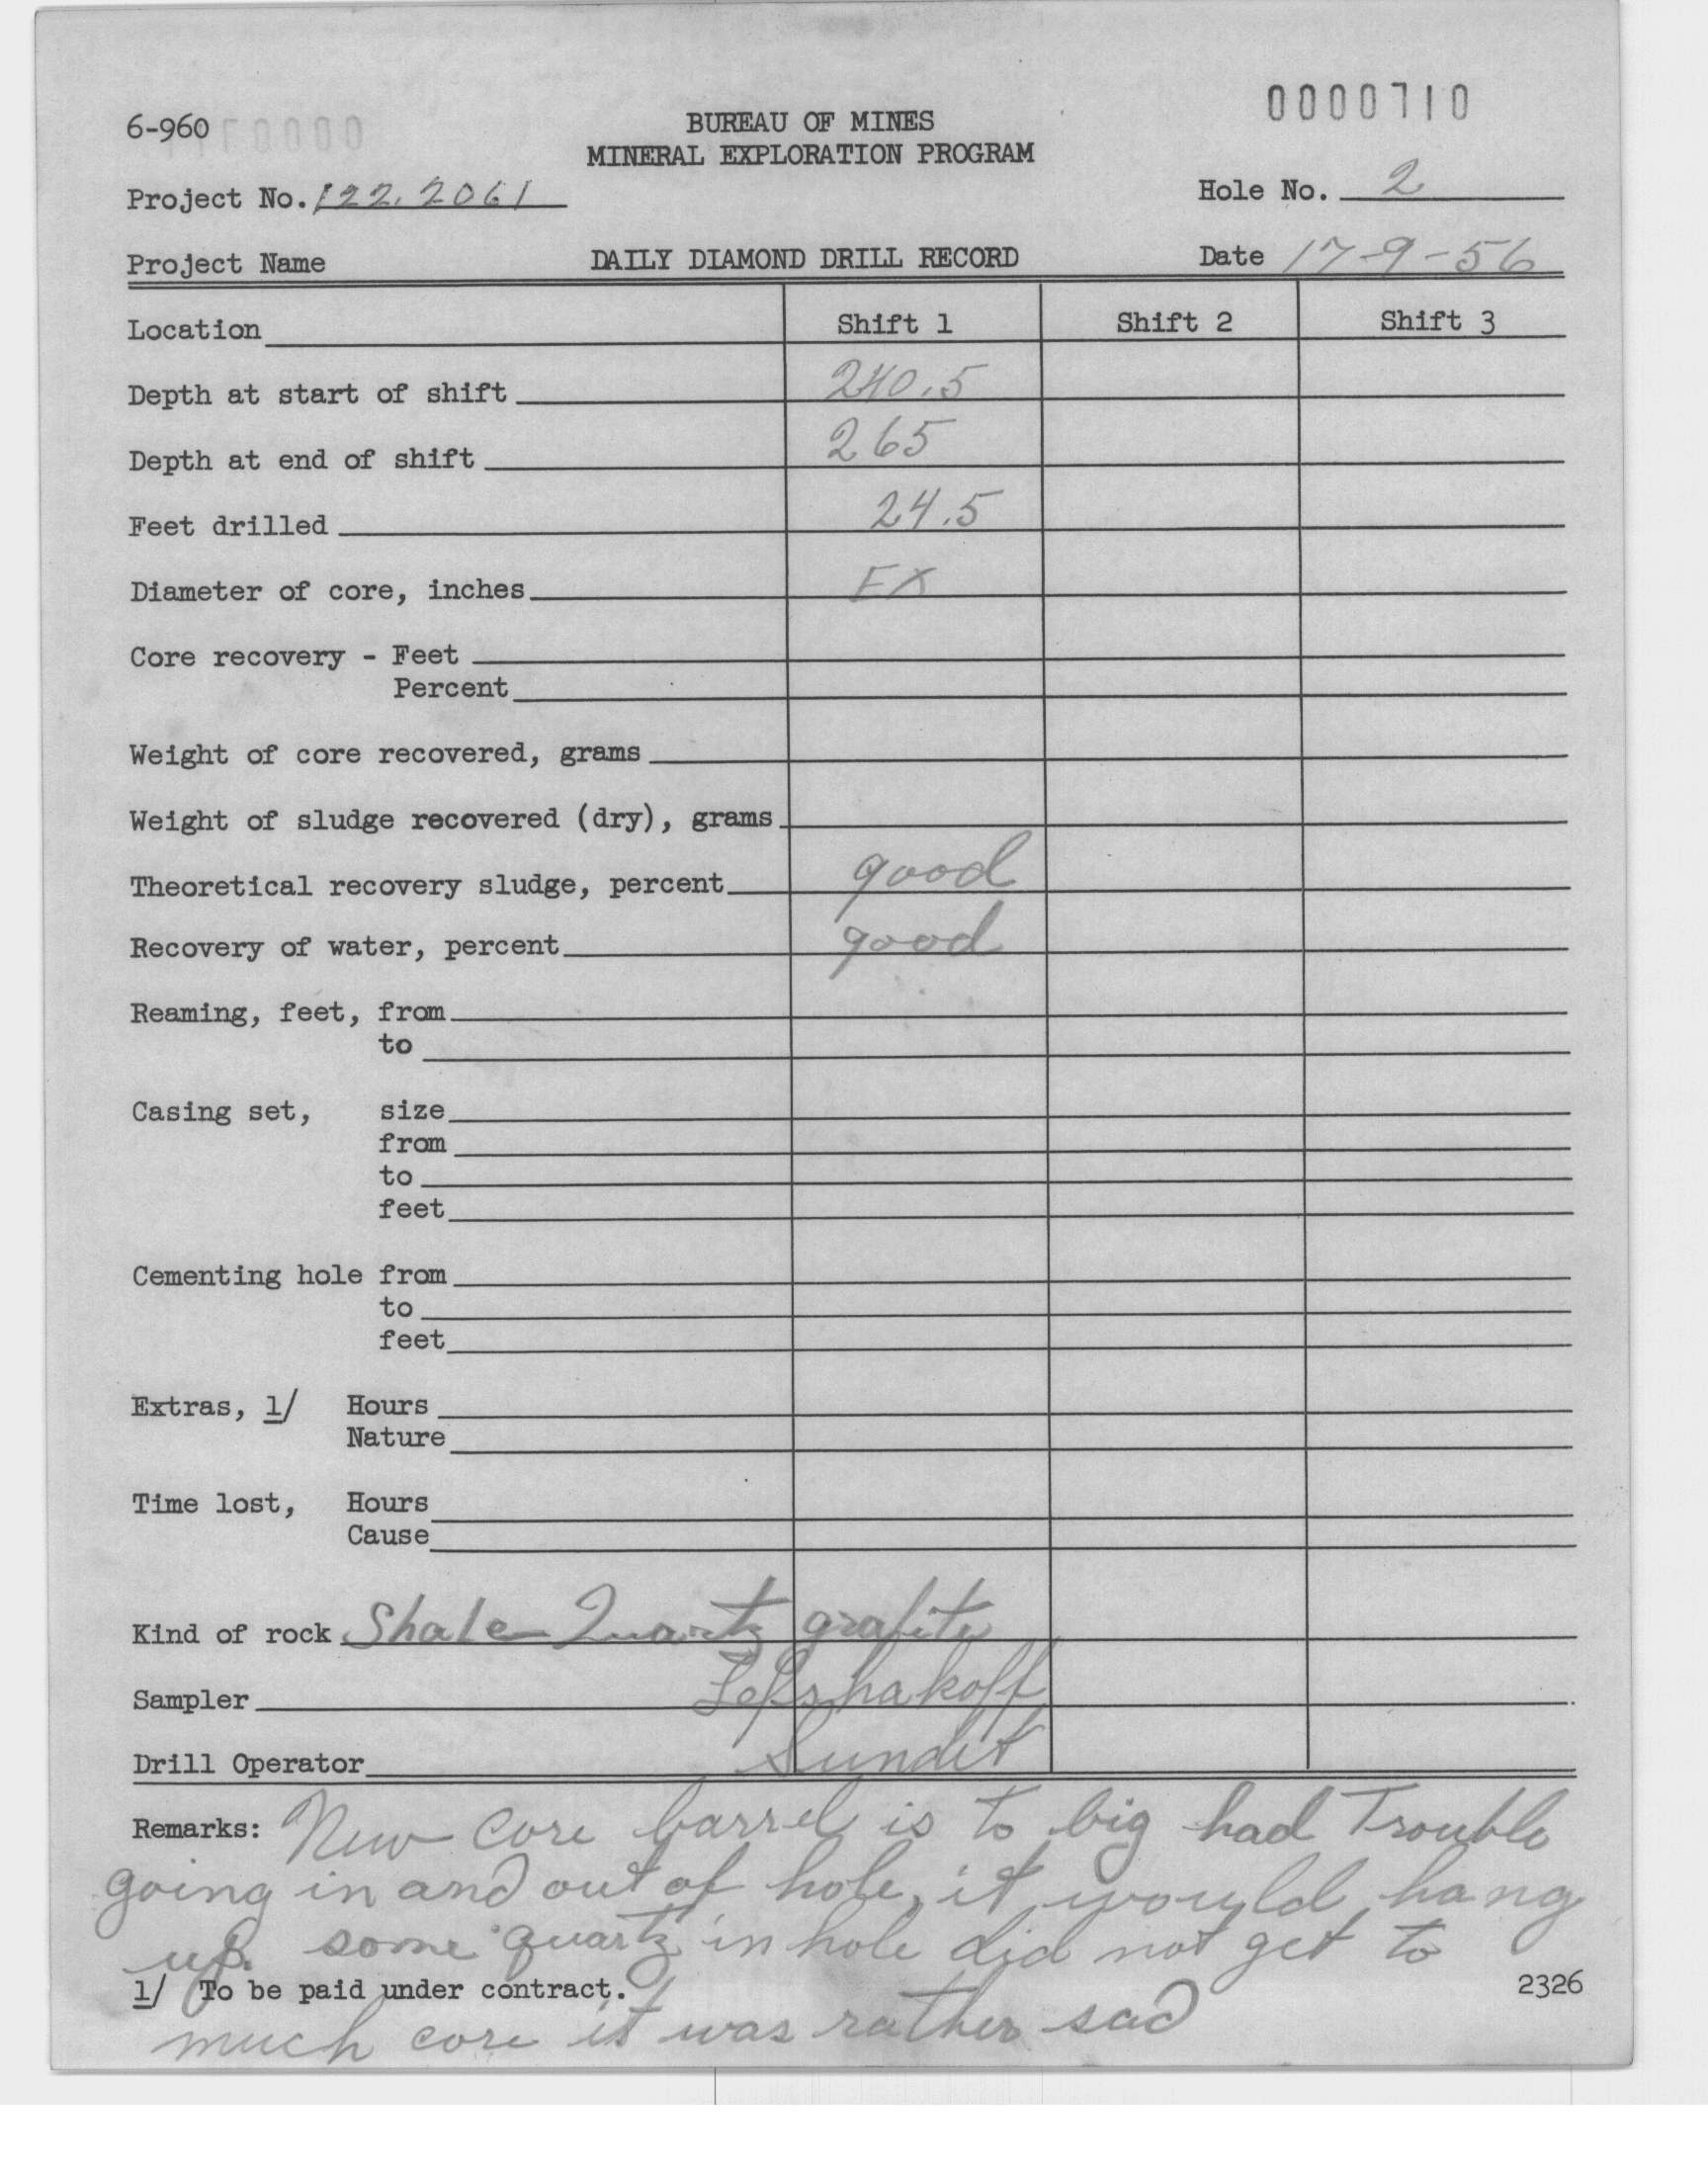 6-960
BUREAU OF MINES
0000710
MINERAL EXPLORATION PROGRAM
Project No. 122.2061
Hole No. 2
Project Name
DAILY DIAMOND DRILL RECORD
Date 17-9-56
Location Shift 1 Shift 2 Shift 3
Depth at start of shift 240.5
Depth at end of shift 265
Feet drilled 24.5
Diameter of core, inches EX
Core recovery - Feet
Percent
Weight of core recovered, grams
Weight of sludge recovered (dry), grams
Theoretical recovery sludge, percent good
Recovery of water, percent good
Reaming, feet, from
to
Casing set, size
from
to
feet
Cementing hole from
to
feet
Extras, 1/ Hours
Nature
Time lost, Hours
Cause
Kind of rock Shale Quartz grafite
Sampler
Drill Operator
Remarks: New core barrel is to big had Trouble
going in and out of hole, it would hang
up. some quartz in hole did not get to
1/ To be paid under contract. 2326
much core it was rather sad